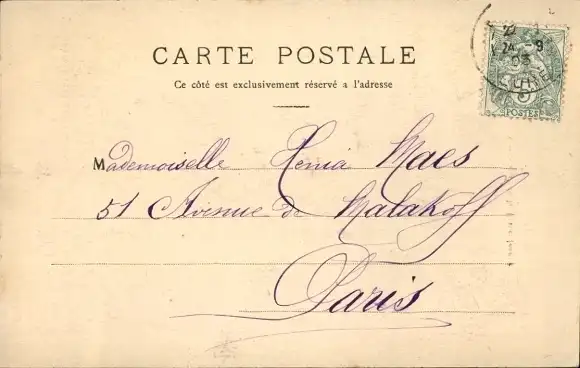 CARTE POSTALE
Ce côté est exclusivement réservé a l'adresse
Mademoiselle Xenia Maes
51 Avenue de Malakoff
Paris
24 -9
03
5
POSTES